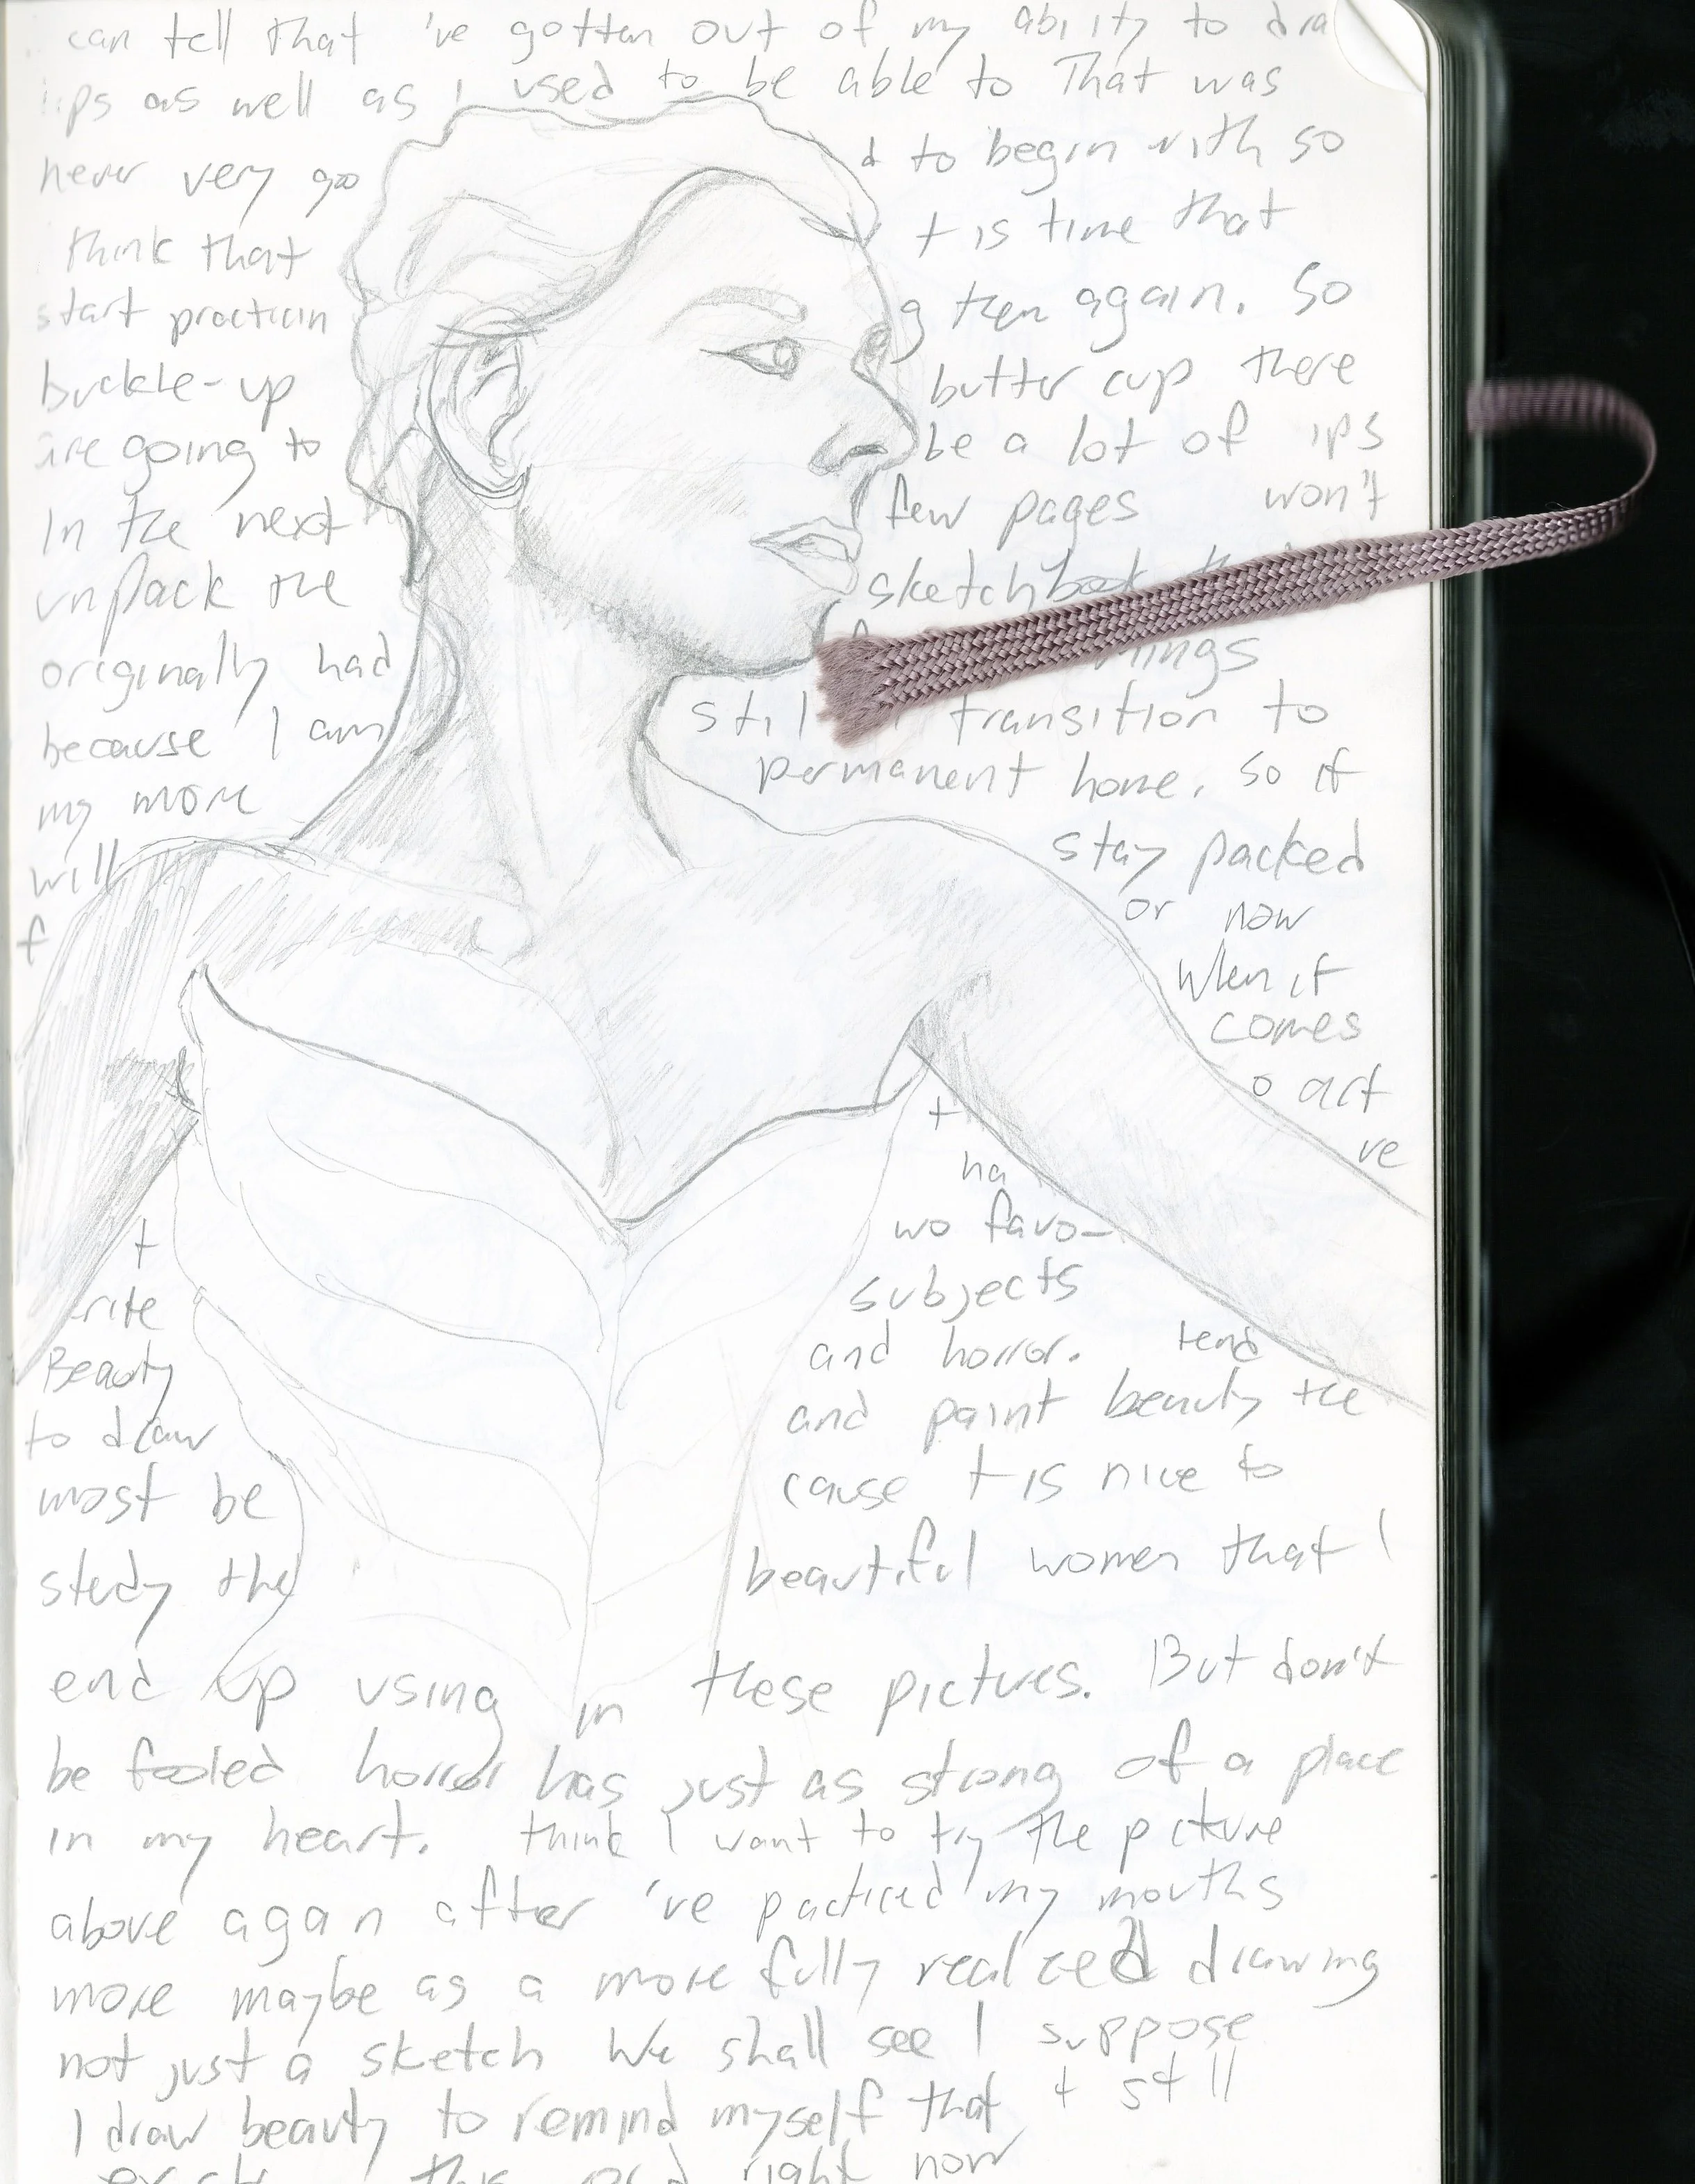 can tell that 've gotten out of my ability to dra
ips as well as I used to be able to That was
never very goo d to begin with so
think that t is time that
start practicin g then again. So
buckle-up butter cup there
are going to be a lot of ips
In the next few pages won't
unpack the sketchbook
originally had things
because I am stil transition to
my more permanent home. So it
will stay packed
f or now
When it
comes
t o art
ha ve
t wo favo-
rite subjects
Beauty and horror. tend
to draw and paint beauty the
most be cause t is nice to
study the beautiful women that I
end up using in these pictures. But don't
be fooled horror has just as strong of a place
in my heart. think I want to try the p cture
above again after 've practiced my mouths
more maybe as a more fully real zed drawing
not just a sketch We shall see I suppose
I draw beauty to remind myself that t st ll
right now